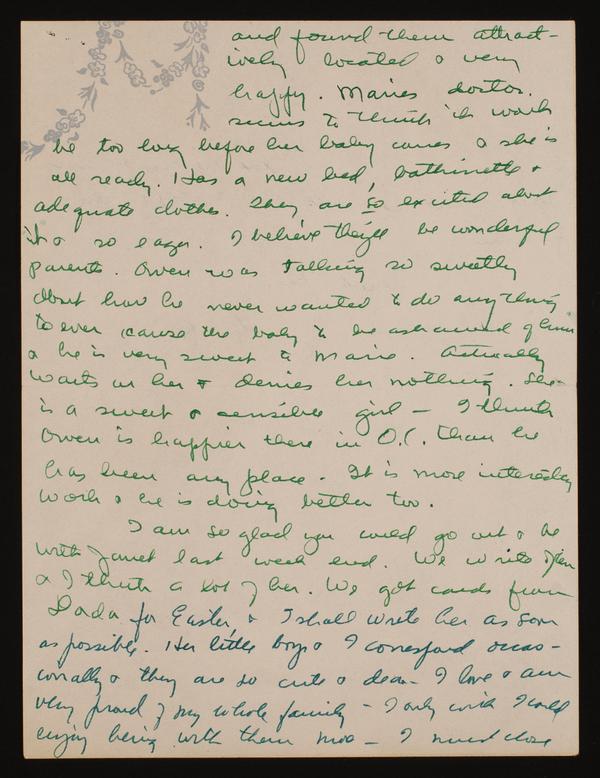 and found them attract-
ively located & very
happy. Maries doctor.
seems to think it wont
be too long before her baby comes & she is
all ready. Has a new bed, bathinette &
adequate clothes. They are so excited about
it & so eager. I believe they'll be wonderful
parents. Owen was talking so sweetly
about how he never wanted to do anything
to ever cause the baby to be ashamed of him
& he is very sweet to Marie. Actually
waits on her & denies her nothing. She
is a sweet & sensible girl — I think
Owen is happier there in O.C. than he
has been any place. It is more interesting
work & he is doing better too.
I am so glad you could go out & be
with Janet last week end. We write
& I think a lot of her. We got cards from
Dada for Easter, & I shall write her as soon
as possible. Her little boys & I correspond occas-
ionally & they are so cute & dear — I love & am
very proud of my whole family — I only wish I could
enjoy being with them more — I must close